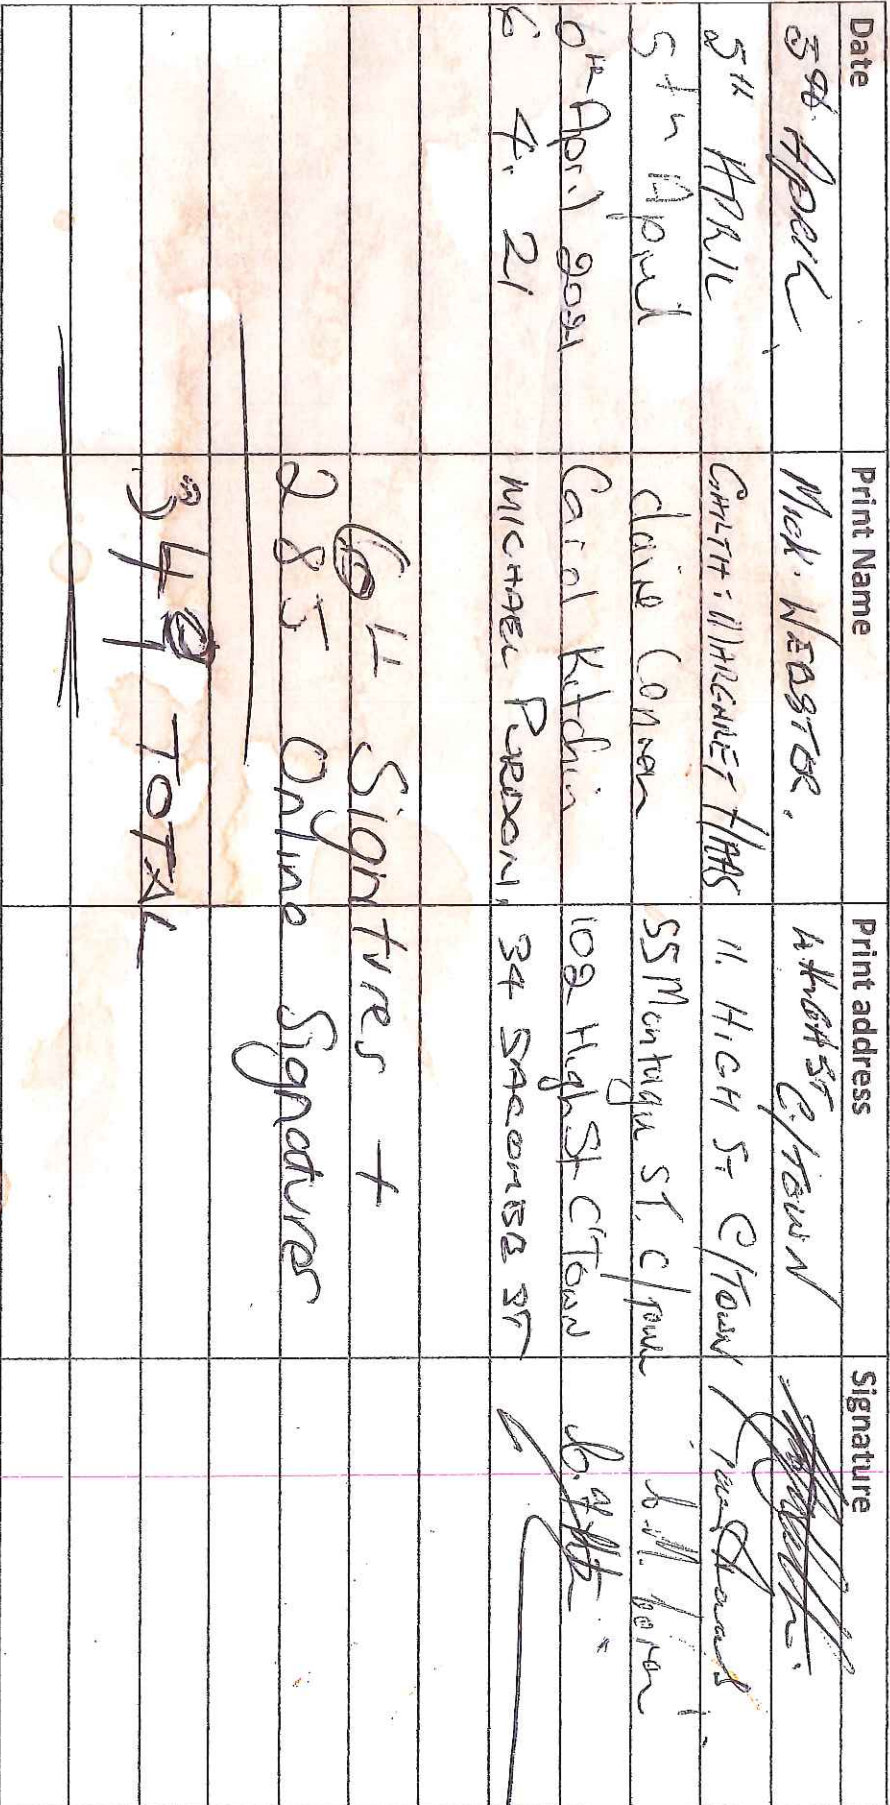 Date Print Name Print address Signature
5th April Mick WEBSTER. ST C/TOWN
5th APRIL MARGARET HAAS 11. HIGH ST C/TOWN
5th April claire 55 Montagu ST. C/Town
6th April 2021 Carol Kitchin 102 High St C'Town
6 4. 21 MICHAEL PURDON, 34 ST
64 Signtures +
285 Online Signatures
349 TOTAL